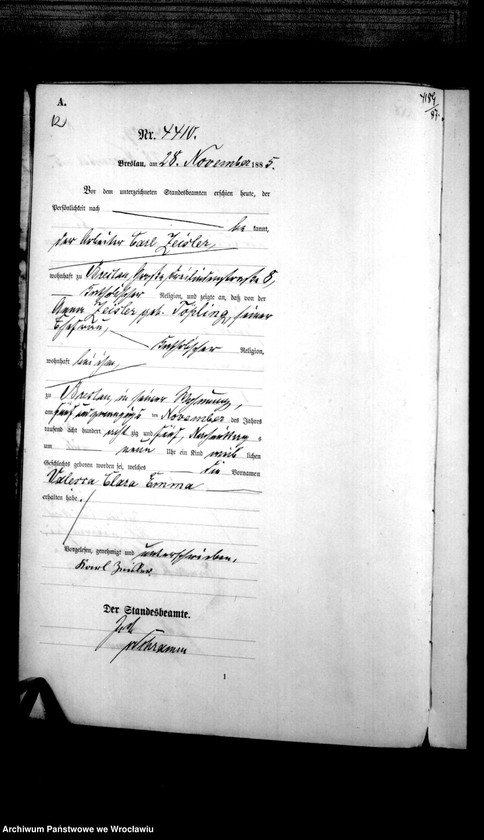 A.
12
4184/87.
Nr. 4410.
Breslau, am 28. November 1885.
Vor dem unterzeichneten Standesbeamten erschien heute, der
Persönlichkeit nach
be kannt,
der Arbeiter Carl Zeisler,
wohnhaft zu Breslau, 8,
katholischer Religion, und zeigte an, daß von der
Anna Zeisler, geb. Töpling, seiner
Ehefrau,
katholischer Religion,
wohnhaft bei ihm,
zu Breslau, in seiner Wohnung,
am fünf und zwanzigsten November des Jahres
tausend acht hundert acht zig und fünf, Nachmittags
um neun Uhr ein Kind weib lichen
Geschlechts geboren worden sei, welches die Vornamen
Valerca Clara Emma
erhalten habe.
Vorgelesen, genehmigt und unterschrieben,
Karl
Der Standesbeamte.
Schramm
1
Archiwum Państwowe we Wrocławiu